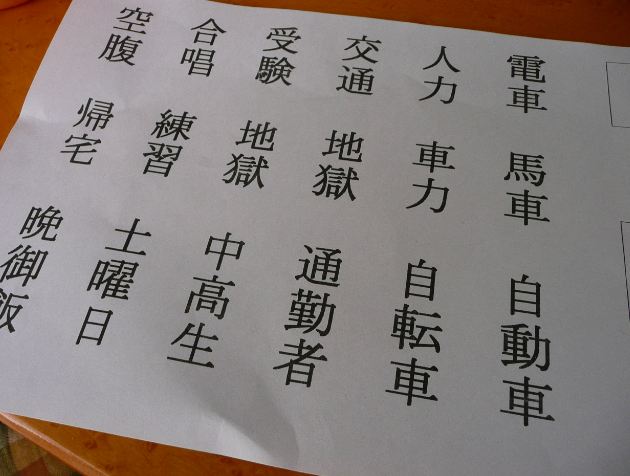 電車 馬車 自動車
人力 車力 自転車
交通 地獄 通勤者
受験 地獄 中高生
合唱 練習 土曜日
空腹 帰宅 晩御飯